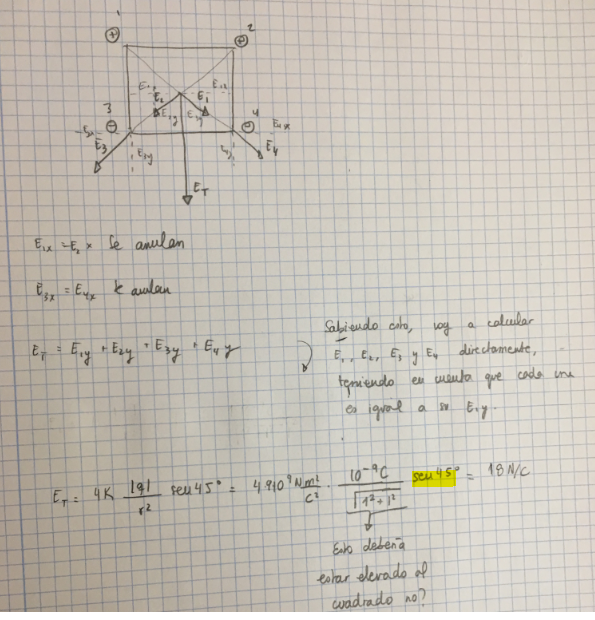 1
+
2
+
E₂
E₁
3
4
E₃
E₃y
E₄
E_T
E₁ₓ = E₂ x Se anulan
E₃ₓ = E₄ₓ se anulan
E_T = E₁y + E₂y + E₃y + E₄y
Sabiendo esto, voy a calcular
E₁, E₂, E₃ y E₄ directamente,
teniendo en cuenta que cada una
es igual a su E₁y.
E_T = 4K |q|/r² sen 45° = 4·9·10⁹ Nm²/C² · 10⁻⁹C/√(1²+1²) sen 45° = 18 N/C
Esto debería
estar elevado al
cuadrado no?